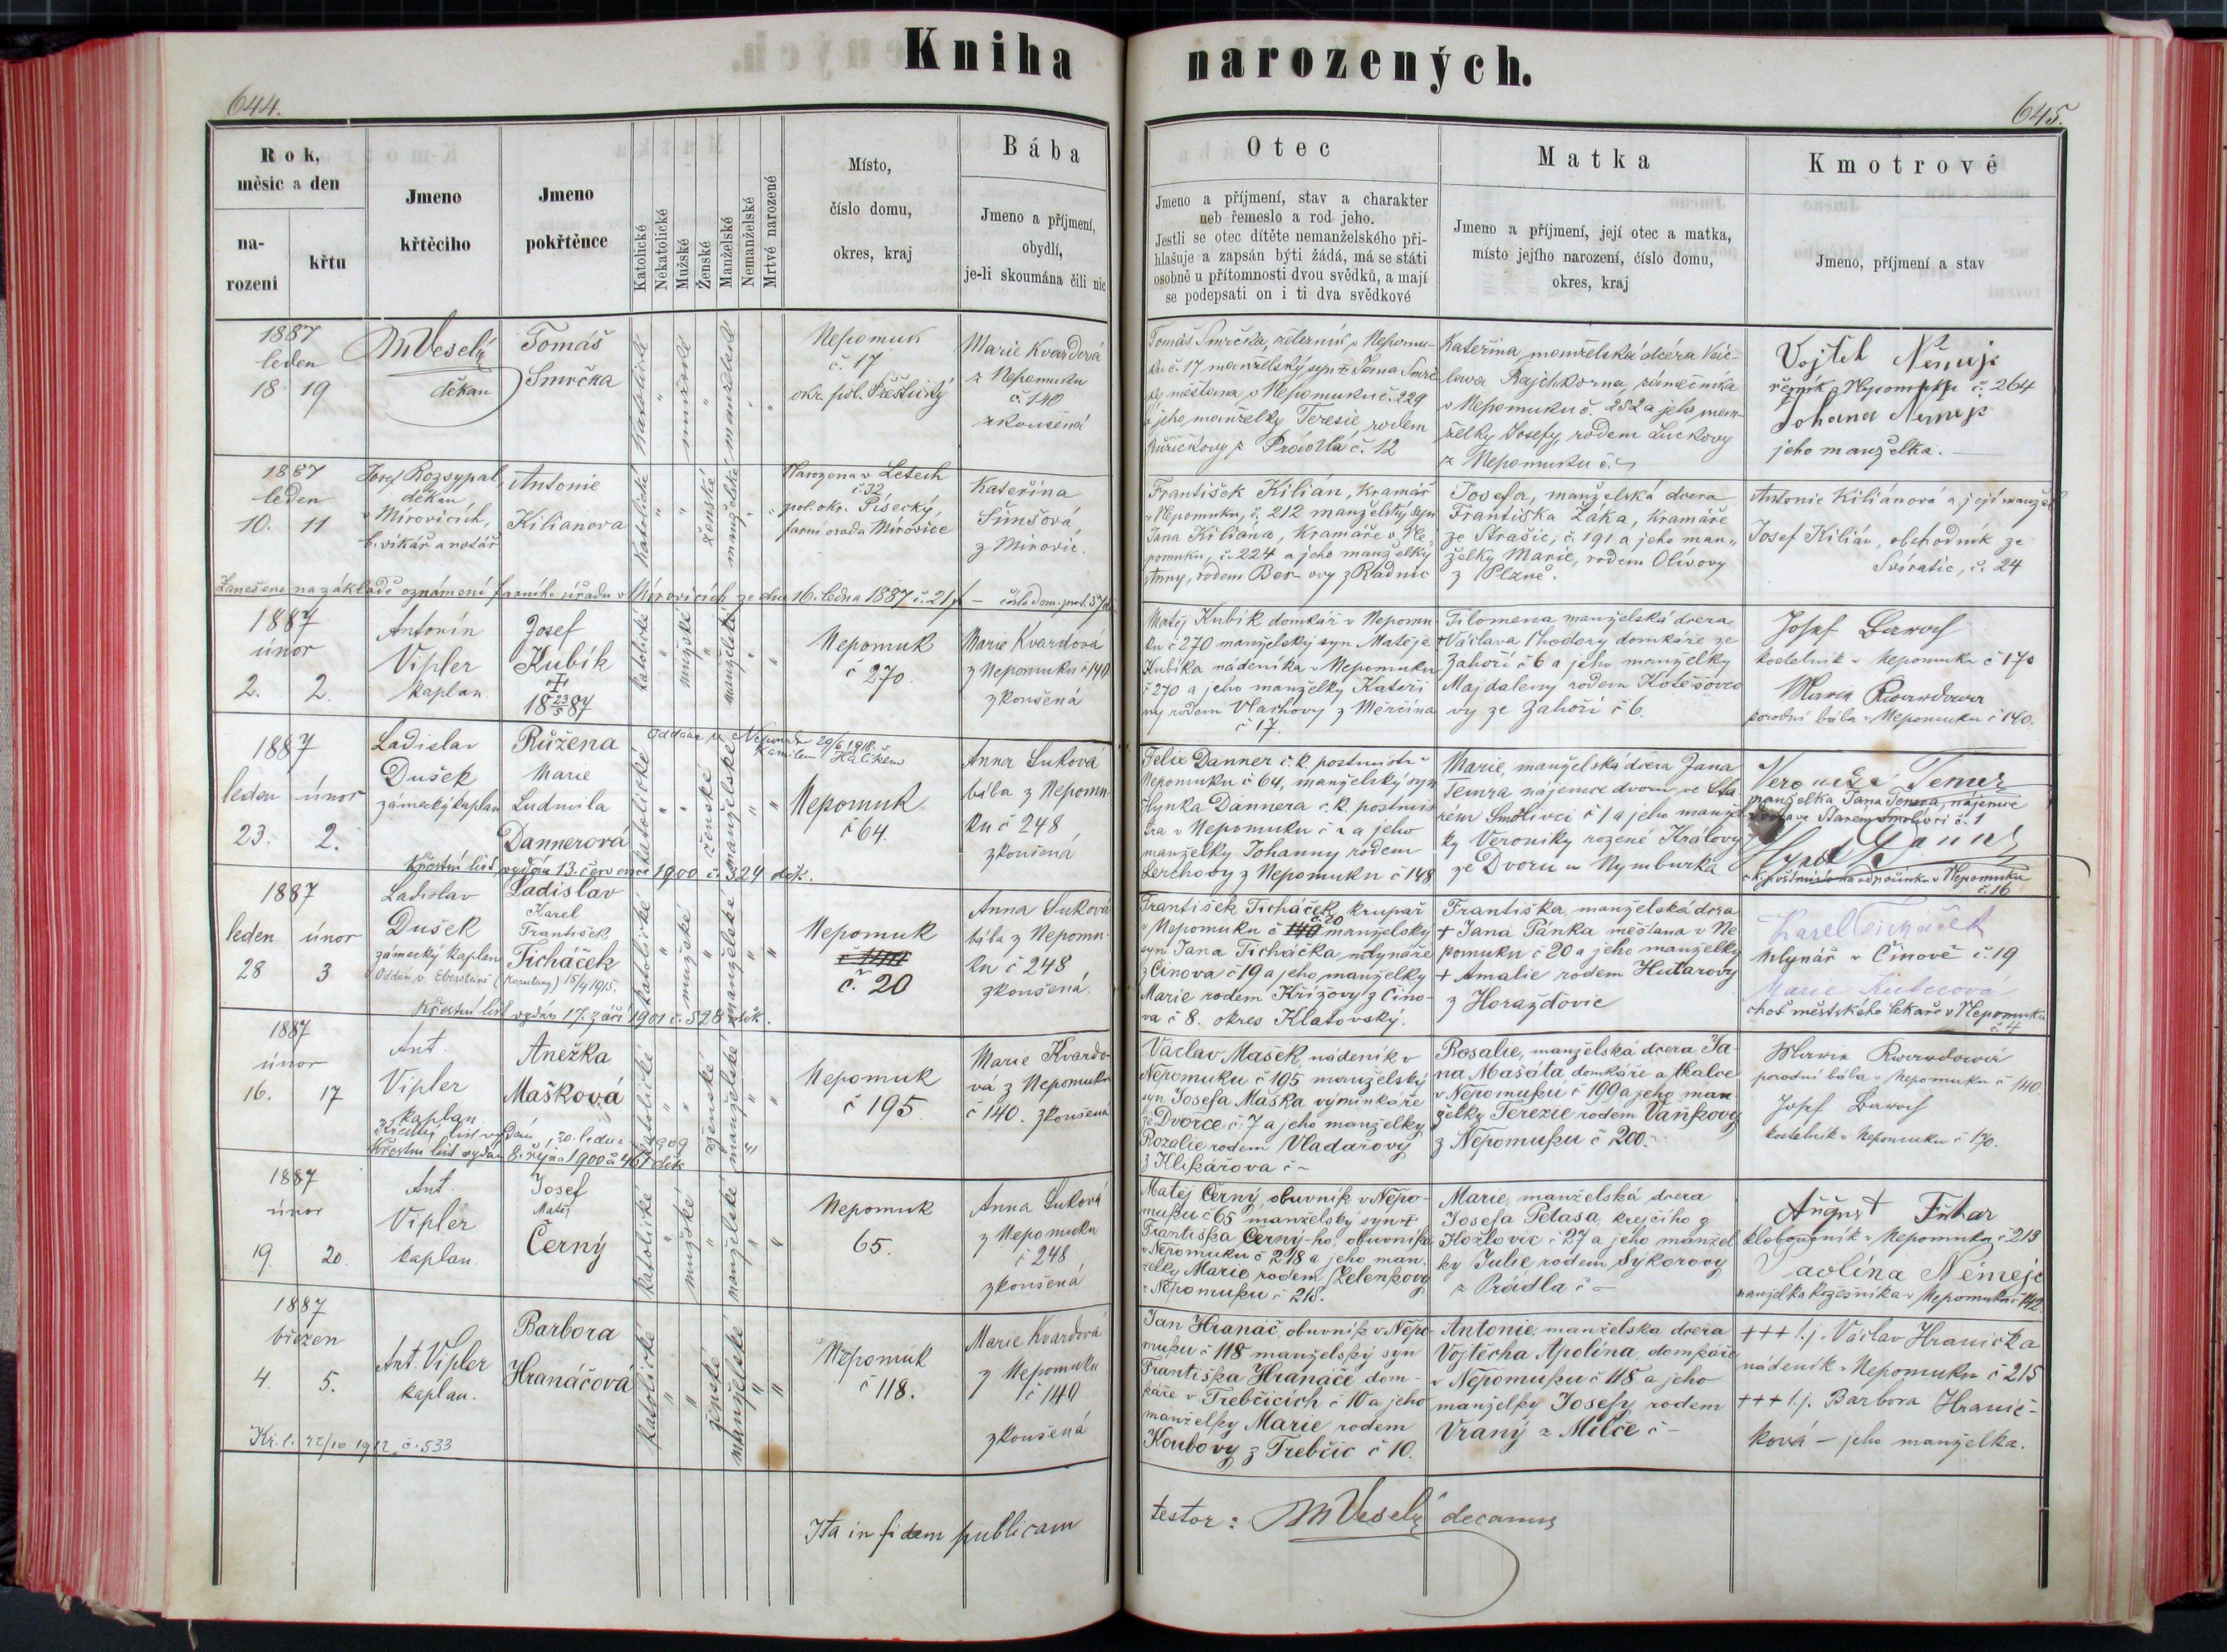 Kniha narozených.
644.
645.
Rok, měsíc a den
narození
křtu
Jmeno křtěcího
Jmeno pokřtěnce
Katolické
Nekatolické
Mužské
Ženské
Manželské
Nemanželské
Mrtvě narozené
Místo,
číslo domu,
okres, kraj
Bába
Jmeno a příjmení,
obydlí,
je-li skoumána čili nic
Otec
Jmeno a příjmení, stav a charakter
neb řemeslo a rod jeho.
Jestli se otec dítěte nemanželského při-
hlašuje a zapsán býti žádá, má se státi
osobně u přítomnosti dvou svědků, a mají
se podepsati on i ti dva svědkové
Matka
Jmeno a příjmení, její otec a matka,
místo jejího narození, číslo domu,
okres, kraj
Kmotrové
Jmeno, příjmení a stav
1887
leden
18 19
MVeselý
děkan
Tomáš
Smrčka
katolické " mužské " manželské " "
Nepomuk
č. 17
okr. pol. Přeštický
Marie Kvardová
z Nepomuku
č. 140
zkoušená
Tomáš Smrčka, železník v Nepomu-
ku č. 17 manželský syn † Jana Smrč-
ky měšťana v Nepomuku č. 229
a jeho manželky Teresie, rodem
z Prádla č. 12
Kateřina, manželská dcéra Vác-
lava zámečníka
v Nepomuku č. 252 a jeho man-
želky Josefy, rodem
z Nepomuku č.
Vojteh Němejc
řezník z Nepomuku č. 264
Johana Němejc
jeho manželka.
1887
leden
10. 11
Josef Rozsypal,
děkan
v Mirovicích,
b. vikář a notář
Antonie
Kilianova
katolické " " ženské manželské " "
Narozena v Letech
č. 32
pol. okr. Písecký,
farní osada Mirovice
Kateřina
Šimšová,
z Mirovic.
František Kilián, kramář
v Nepomuku, č. 212 manželský syn
Jana Kiliána, kramáře v Ne-
pomuku, č. 224 a jeho manželky
Anny, rodem z Radnic
Josefa, manželská dcera
Františka Žáka, kramáře
ze Strašic, č. 191 a jeho man-
želky Marie, rodem Olivovy
z Plzně.
Antonie Kiliánová a její manžel
Josef Kilián, obchodník ze
Svíratic, č. 24
Zanešeno na základě oznámení farního úřadu v Mirovicích ze dne 16. ledna 1887 č. 21
1887
únor
2. 2.
Antonín
Vipler
kaplan
Josef
Kubík
†
18 23/5 87
katolické " mužské " manželské " "
Nepomuk
č 270.
Marie Kvardová
z Nepomuku č 140
zkoušená
Matěj Kubík domkář v Nepomu
ku č 270 manželský syn Matěje
Kubíka nádeníka v Nepomuku
č 270 a jeho manželky Kateři
ny rodem Vlachovy z Měrčína
č 17.
Filomena manželská dcera
† Václava Chodory domkáře ze
Záhoří č 6 a jeho manželky
Majdaleny rodem Kotěšovco
vy ze Záhoří č 6.
Josef
kostelník v Nepomuku č 170
Marie Kwardowa
porodní bába v Nepomuku č 140.
1887
leden únor
23. 2.
Ladislav
Dušek
zámecký kaplan
Růžena
Marie
Ludmila
Dannerová
Oddána 29/6 1918.
Kamilem
katolické " " ženské manželské " "
Nepomuk
č 64.
Anna Suková
bába z Nepomu-
ku č 248
zkoušená
Křestní list vydán 13. července 1900 č. 324 dek.
Felix Danner c. k. postmistr v
Nepomuku č 64, manželský syn
Hynka Dannera c. k. postmis
tra v Nepomuku č a jeho
manželky Johanny rodem
Lerchovy z Nepomuku č 148
Marie, manželská dcera Jana
Temra nájemce dvoru ve Sta-
rém Smolivci č 1 a jeho manžel
ky Veroniky rozené Královy
ze Dvorů u Nymburka
Temer
manželka Jana Temra, nájemce
dvora ve Starém Smolivci č. 1
Hynek Danner
c. k. poštmistr na odpočinku v Nepomuku
č. 16
1887
leden únor
28 3
Ladislav
Dušek
zámecký kaplan
Oddán v Eberštáně (Korutany) 15/4 1915.
Ladislav
Karel
František
Ticháček
katolické " mužské " manželské " "
Nepomuk
č. 20
Anna Suková
bába z Nepomu-
ku č 248
zkoušená.
Křestní list vydán 17. září 1901 č. 528 dek.
František Ticháček krupař
č. 20
v Nepomuku č manželský
syn Jana Ticháčka mlynáře
z Činova č 19 a jeho manželky
Marie rodem Křížovy z Čino-
va č 8. okres Klatovský.
Františka, manželská dcera
† Jana Pánka měšťana v Ne
pomuku č 20 a jeho manželky
† Amalie rodem Hutarovy
z Horažďovic
Karel Ticháček
mlynář v Činově č. 19
Marie Kubecová
choť městského lékaře v Nepomuku
č. 4
1887
únor
16. 17
Ant.
Vipler
kaplan
Anežka
Mašková
katolické " " ženské manželské " "
Nepomuk
č 195
Marie Kvardo-
vá z Nepomuku
č 140. zkoušená
Křestní list vydán 20. ledna 1909
Křestní list vydán 8. října 1900 č 461 dek
Václav Mašek, nádeník v
Nepomuku č 195 manželský
syn Josefa Maška výminkáře
ze Dvorce č. 7 a jeho manželky
Rozalie rodem Vladařovy
z Klikařova č -
Rosalie, manželská dcera Ja-
na Mašáta domkáře a tkalce
v Nepomuku č 199 a jeho man
želky Terezie rodem Vaňkovy
z Nepomuku č 200.
Marie Kwardowá
porodní bába v Nepomuku č 140
Josef
kostelník v Nepomuku č 170.
1887
únor
19. 20.
Ant.
Vipler
kaplan.
Josef
Matěj
Černý
katolické " mužské " manželské " "
Nepomuk
65.
Anna Suková
z Nepomuku
č 248
zkoušená
Matěj Černý, obuvník v Nepo-
muku č 65 manželský syn †
Františka Černý-ho, obuvníka
v Nepomuku č 218 a jeho man-
želky Marie rodem Zelenkovy
z Nepomuku č 218.
Marie, manželská dcera
Josefa Petasa, krejčího z
Kozlovic č 27 a jeho manžel
ky Julie rodem Sýkorovy
z Prádla č -
August
kloboučník v Nepomuku č 213
Paolina Němejc
manželka řezníka v Nepomuku č 142
1887
březen
4. 5.
Ant. Vipler
kaplan.
Barbora
Hranáčová
katolické " " ženské manželské " "
Nepomuk
č 118.
Marie Kvardová
z Nepomuku
č 140
zkoušená
Kř. l. 22/10 1912 č. 533
Jan Hranáč, obuvník v Nepo-
muku č 118 manželský syn
Františka Hranáče dom-
káře v Třebčicích č 10 a jeho
manželky Marie rodem
Koubovy z Třebčic č 10.
Antonie, manželska dcera
Vojtěcha Apolína, domkáře
v Nepomuku č 118 a jeho
manželky Josefy rodem
Vraný z Milče č -
+++ t. j. Václav Hranička
nádeník v Nepomuku č 215
+++ t. j. Barbora Hranič-
ková - jeho manželka.
Ita in fidem publicam
testor: MVeselý decanus